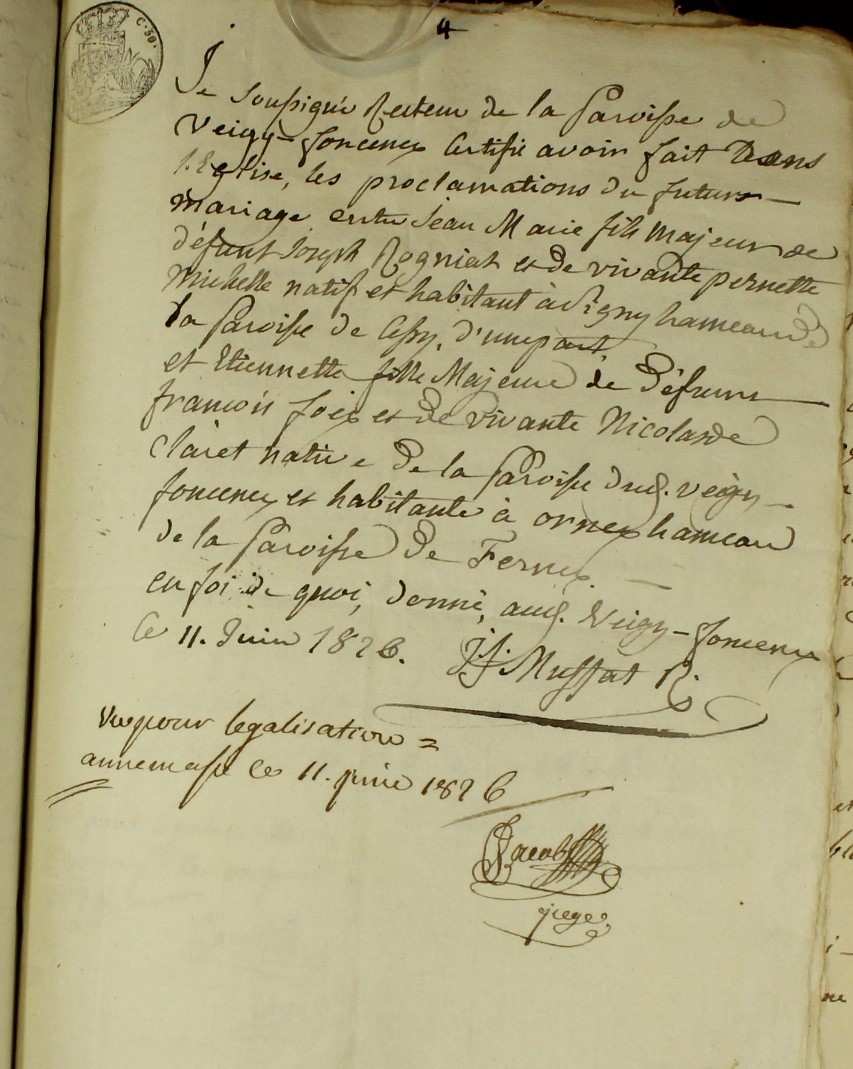 4
C. 50.
Je soussigné Recteur de la Paroisse de
Veigy-foncenex Certifie avoir fait Dans
l'Eglise, les proclamations du futur
mariage entre Jean Marie fils Majeur de
défunt Joseph Rogniat et de vivante pernette
Michelle natif et habitant à vigny hameau de
la Paroisse de Cessy, d'une part
et Etiennette fille Majeure de Défunt
francois foëx et de vivante Nicolarde
Claret native De la Paroisse dud. veigy-
foncenex et habitante à ornex hameau
de la Paroisse De Fernex.
en foi de quoi, donné, aud. Veigy-foncenex
Ce 11. Juin 1826.
Muffat R.
Vu pour legalisation =
annemasse Ce 11. juin 1826
Jacob
juge